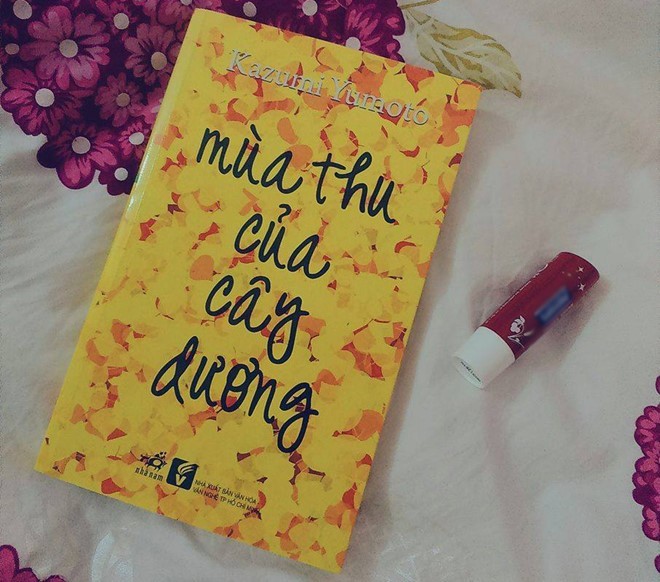 Kazumi Yumoto
mùa thu
của
cây
dương
nhã nam
NHÀ XUẤT BẢN VĂN HÓA
VĂN NGHỆ TP HỒ CHÍ MINH